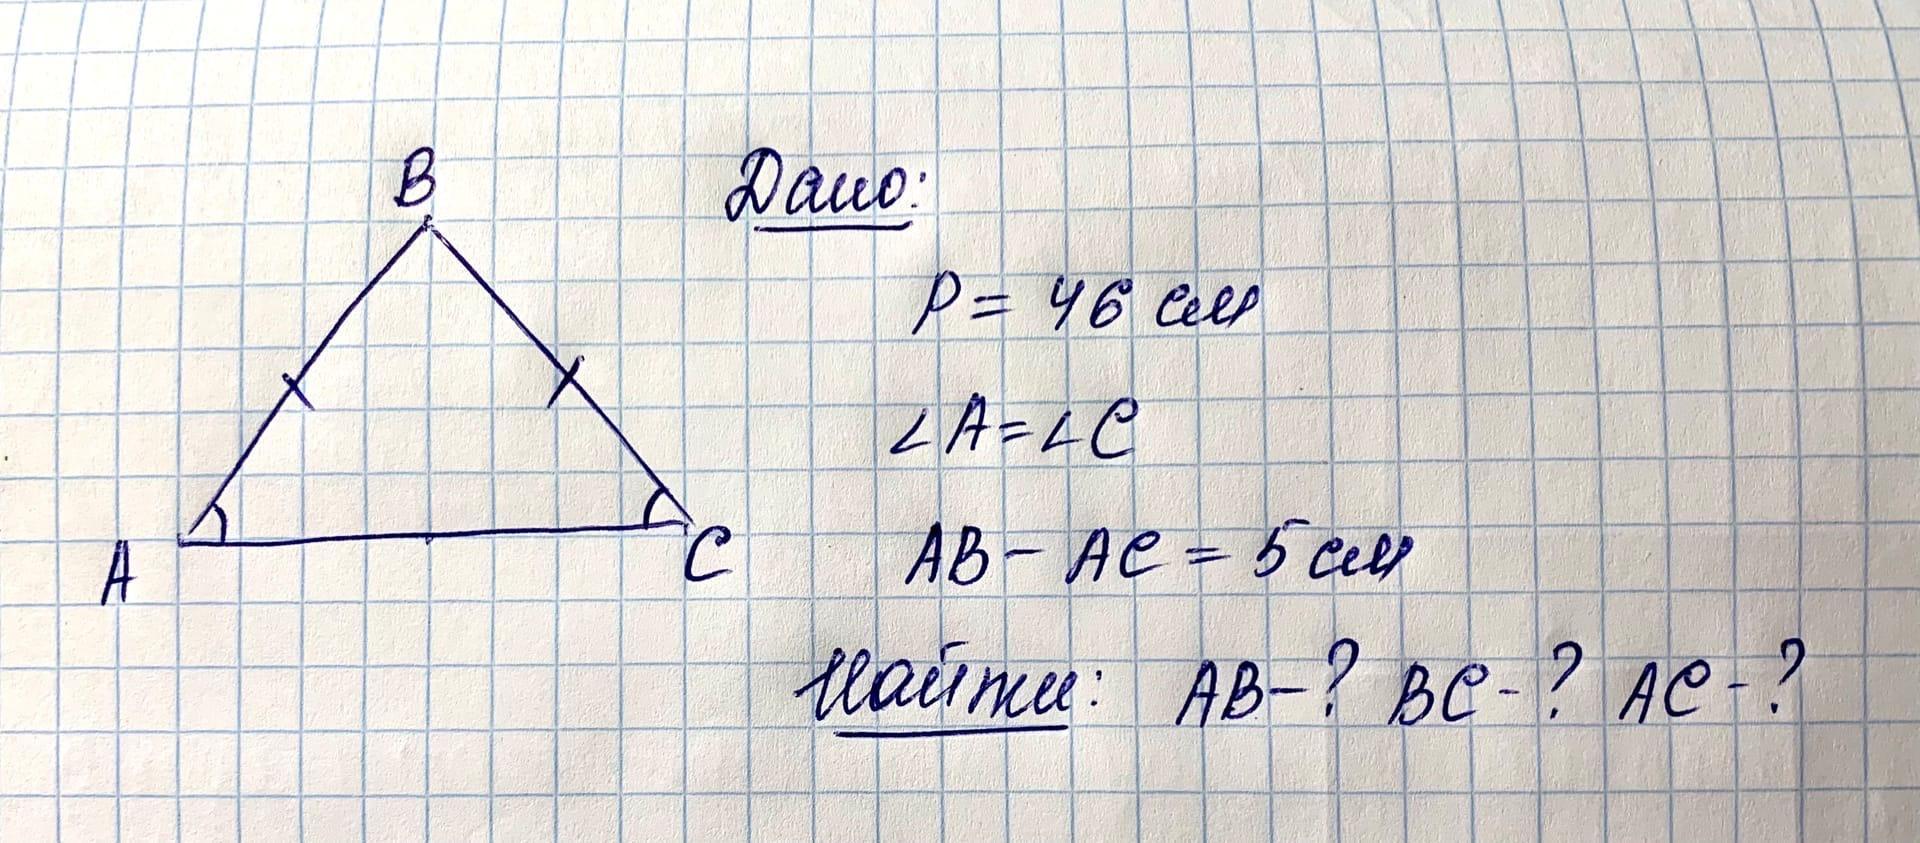 B
Дано:
P = 46 см
∠A=∠C
A
C
AB - AC = 5 см
Найти: AB-? BC-? AC-?